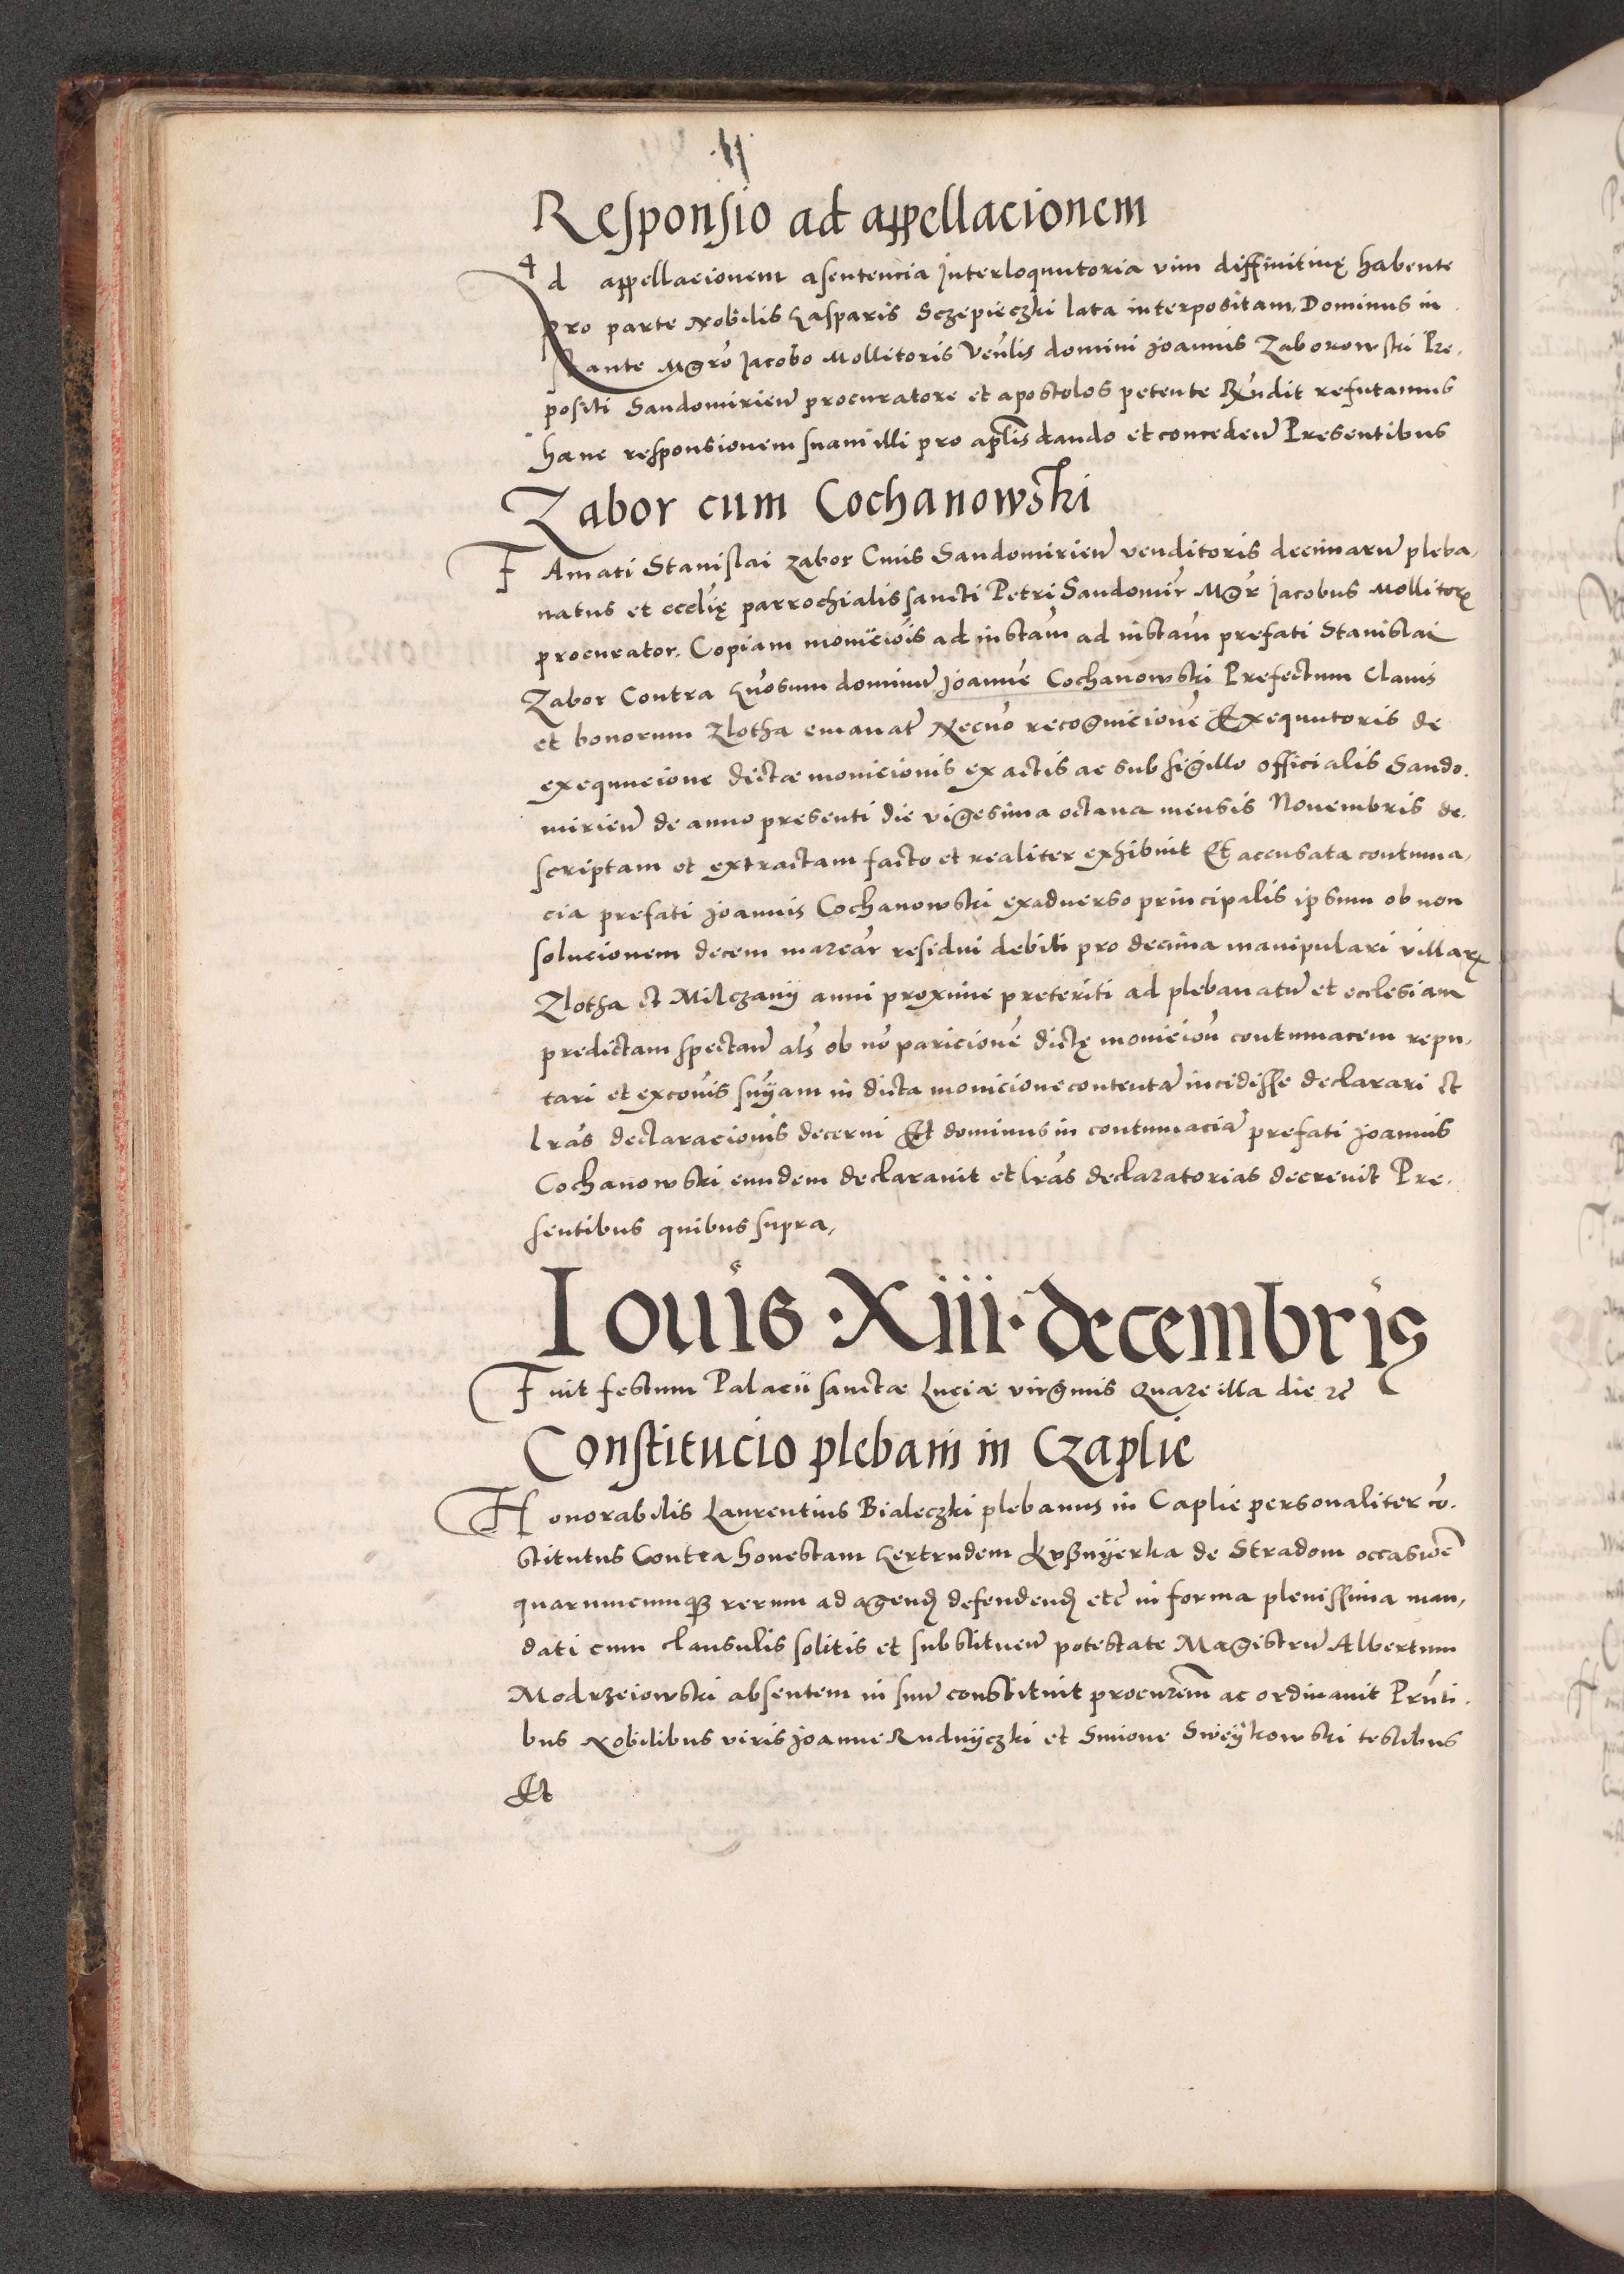 Responsio ad appellacionem
Ad appellacionem a sentencia interloqutoria vim diffinitiuę habente
pro parte Nobilis Gasparis Sczepieczki lata interpositam, Dominus in
stante Mgro Iacobo Mollitoris Venlis domini Joannis Zaborowski Pre,
positi Sandomirien procuratore et apostolos petente Rndit refutamus
hanc responsionem suam illi pro aplis dando et conceden Presentibus
Zabor cum Cochanowski
FAmati Stanislai Zabor Ciuis Sandomirien venditoris decimarum pleba,
natus et ecclię parrochialis sancti Petri Sandomir Mgr Jacobus Mollitoris
procurator. Copiam moniciois ad instam ad instam prefati Stanislai
Zabor Contra Gnosum dominum Joanne Cochanowski Prefectum Clauis
et bonorum Zlotha emanat Necno recognicione Exequutoris de
exequucione dictæ monicionis ex actis ac sub sigillo officialis Sando.
mirien de anno presenti die vigesima octaua mensis Nouembris de.
scriptam et extractam facto et realiter exhibuit Et accusata contuma,
cia prefati Joannis Cochanowski ex aduerso principalis ipsum ob non
solucionem decem marcar residui debiti pro decima manipulari villarum
Zlotha et Milczany anni proxime preteriti ad plebanatum et ecclesiam
predictam spectan als ob no paricione dictę monicion contumacem repu,
tari et excois snyam in dicta monicione contenta incidisse declarari et
lras declaracionis decerni Et dominus in contumacia prefati Joannis
Cochanowski eundem declarauit et lras declaratorias decreuit Pre.
sentibus quibus supra,
Iouis ·Xiii· decembris
Fuit festum Palacii sanctæ Luciæ virginis Quare illa die rc
Constitucio plebani in Czaplie
Honorabilis Laurentius Bialeczki plebanus in Caplie personaliter co.
stitutus Contra honestam Gertrudem de Stradom occasione
quarumcumque rerum ad agend defendend etc in forma plenissima man,
dati cum clausulis solitis et substituen potestate Magistrum Albertum
Modrzeiowski absentem in suum constituit procurem ac ordinauit Prnti.
bus Nobilibus viris Joanne Rudnyczki et Simone Sweykowski testibus
Et